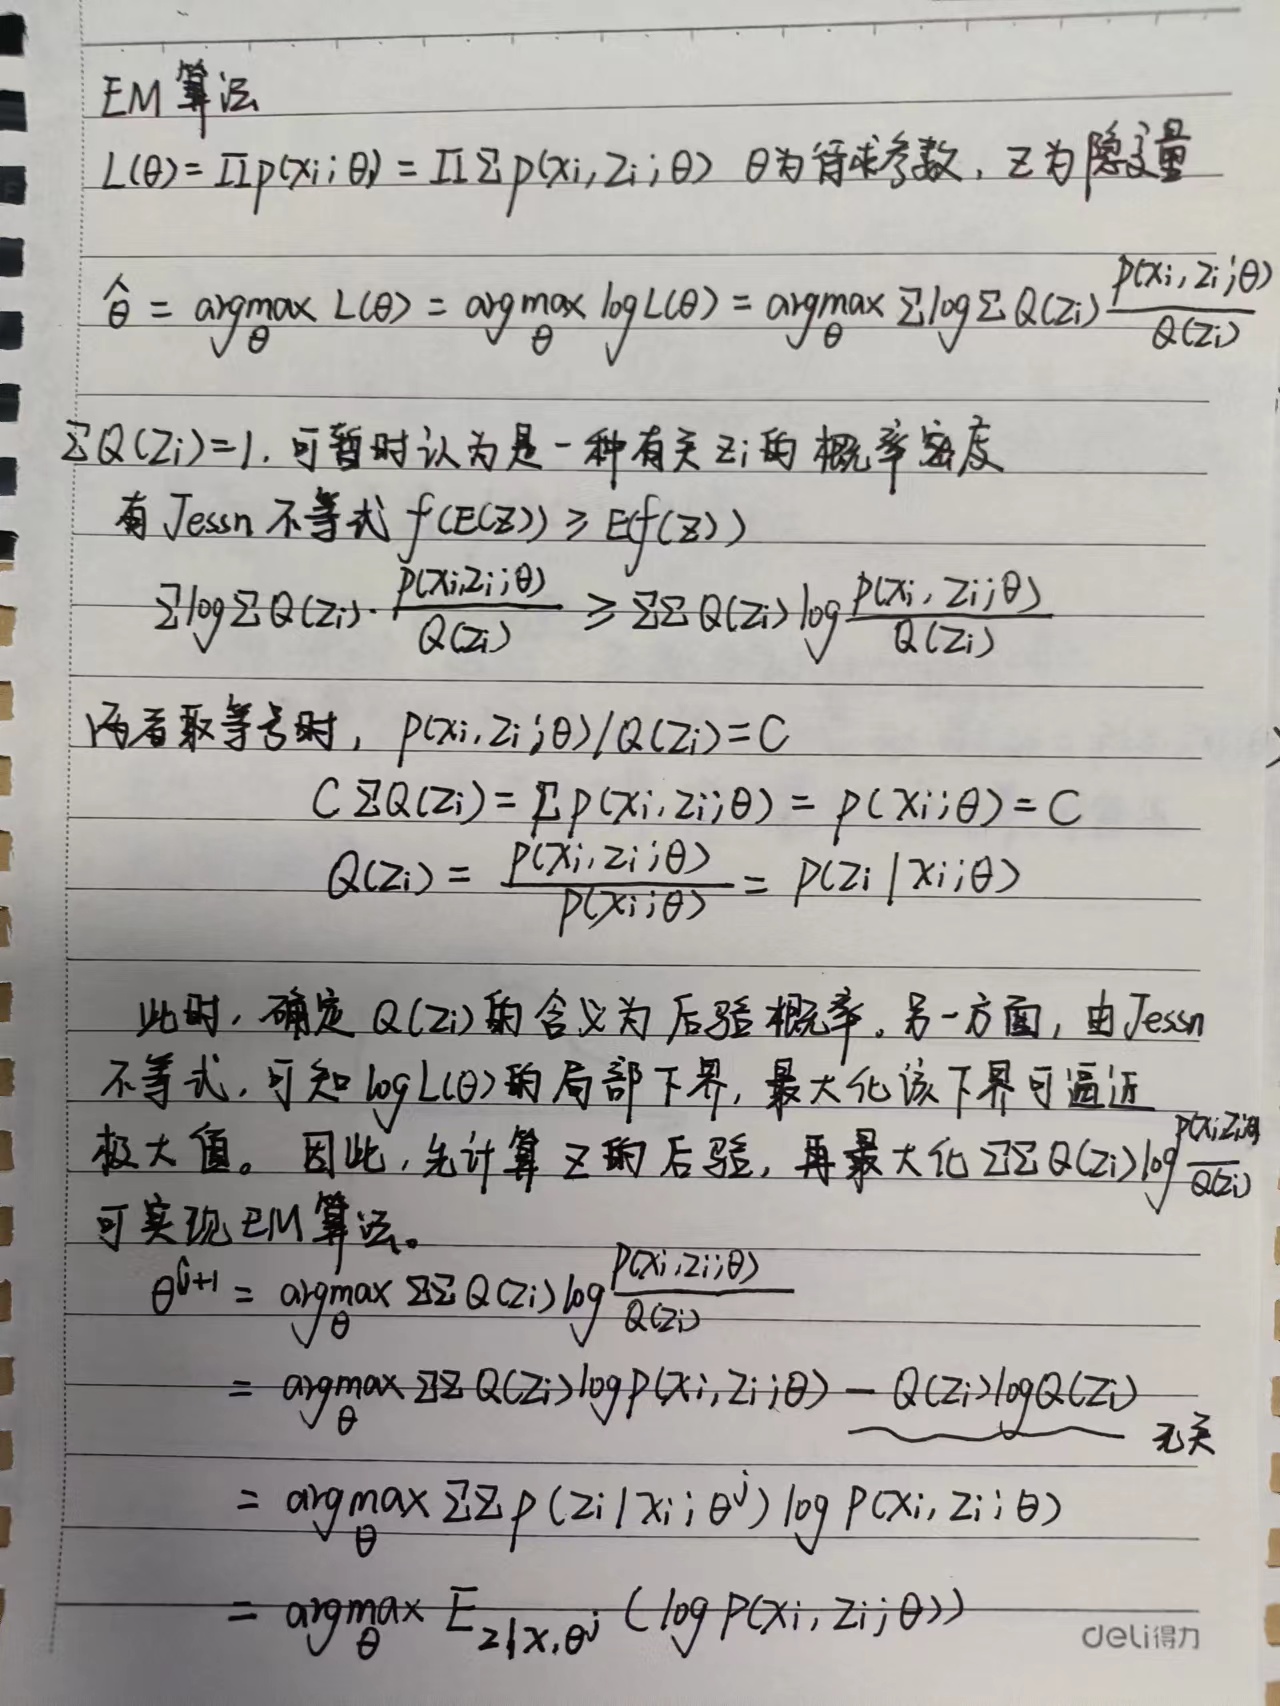 EM 算法
L(θ)=Πp(xi;θ)=ΠΣp(xi,zi;θ) θ为待求参数,z为隐变量
θ̂ = argmax_θ L(θ) = argmax_θ logL(θ) = argmax_θ ΣlogΣQ(zi) p(xi,zi;θ)/Q(zi)
ΣQ(zi)=1. 可暂时认为是一种有关zi的概率密度
有Jessn不等式 f(E(z))≥E(f(z))
ΣlogΣQ(zi)·p(xi,zi;θ)/Q(zi) ≥ ΣΣQ(zi)log p(xi,zi;θ)/Q(zi)
两者取等号时, p(xi,zi;θ)/Q(zi)=C
CΣQ(zi)=Σp(xi,zi;θ)=p(xi;θ)=C
Q(zi) = p(xi,zi;θ)/p(xi;θ) = p(zi|xi;θ)
此时,确定Q(zi)的含义为后验概率。另一方面,由Jessn
不等式,可知logL(θ)的局部下界,最大化该下界可逼近
极大值。因此,先计算z的后验,再最大化ΣΣQ(zi)log p(xi,zi;θ)/Q(zi)
可实现EM算法。
θ^{j+1} = argmax_θ ΣΣQ(zi)log p(xi,zi;θ)/Q(zi)
= argmax_θ ΣΣQ(zi)logp(xi,zi;θ) — Q(zi)logQ(zi) 无关
= argmax_θ ΣΣp(zi|xi;θ^j)logp(xi,zi;θ)
= argmax_θ E_{z|x,θ^j}(logp(xi,zi;θ))
deli得力